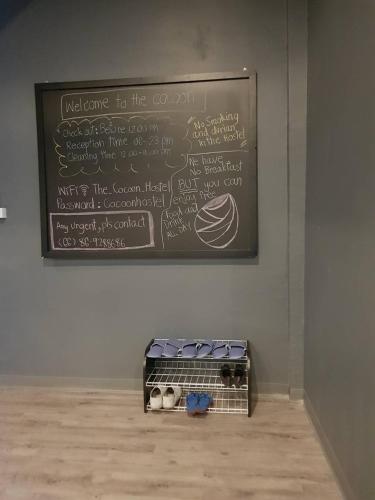 Welcome to the cocoon
Check out: Before 12.00 pm
Reception time 08-23 pm
Cleaning time 12.00-18.00 pm
WiFi The_Cocoon_Hostel
Password: Cocoonhostel
Any urgent, pls contact
86-9288686
No Smoking
and durian
in the Hostel
We have
No Breakfast
BUT you can
enjoy free
Food and
Drink
ALL DAY